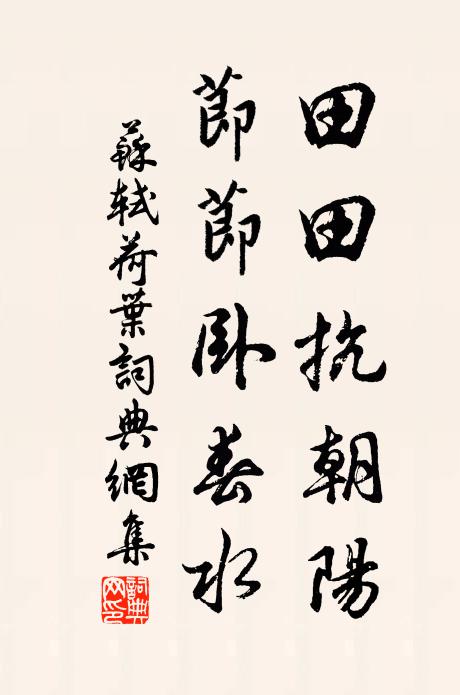 田田抗朝陽
節節臥春水
蘇軾荷葉詞典網集
詞典網印